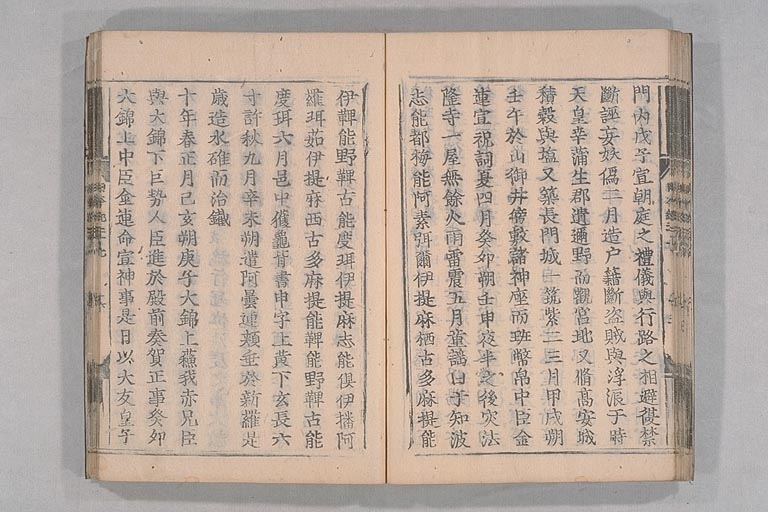 門內戊子宣朝庭之禮儀與行路之相避復禁
斷誣妄妖僞二月造户籍斷盗賊與浮浪于時
天皇幸蒲生郡遺邇野而觀宮地又脩髙安城
積穀與塩又築長門城一筑紫二三月甲戌朔
壬午於山御井傍敷諸神座而班幣帛中臣金
連宣祝詞夏四月癸卯朔壬申夜半之後災法
隆寺一屋無餘大雨雷震五月童謡曰于知波
志能都梅能阿素弭爾伊提麻栖古多麻提能
伊鞞能野鞞古能度珥伊提麻志能俱伊播阿
羅珥茹伊提麻西古多麻提能鞞能野鞞古能
度珥六月邑中獲龜背書申字上黄下玄長六
寸許秋九月辛未朔遣阿曇連頰垂於新羅是
歳造水碓而治鐵
十年春正月己亥朔庚子大錦上蘇我赤兄臣
與大錦下巨勢人臣進於殿前奏賀正事癸卯
大錦上中臣金連命宣神事是日以大友皇子